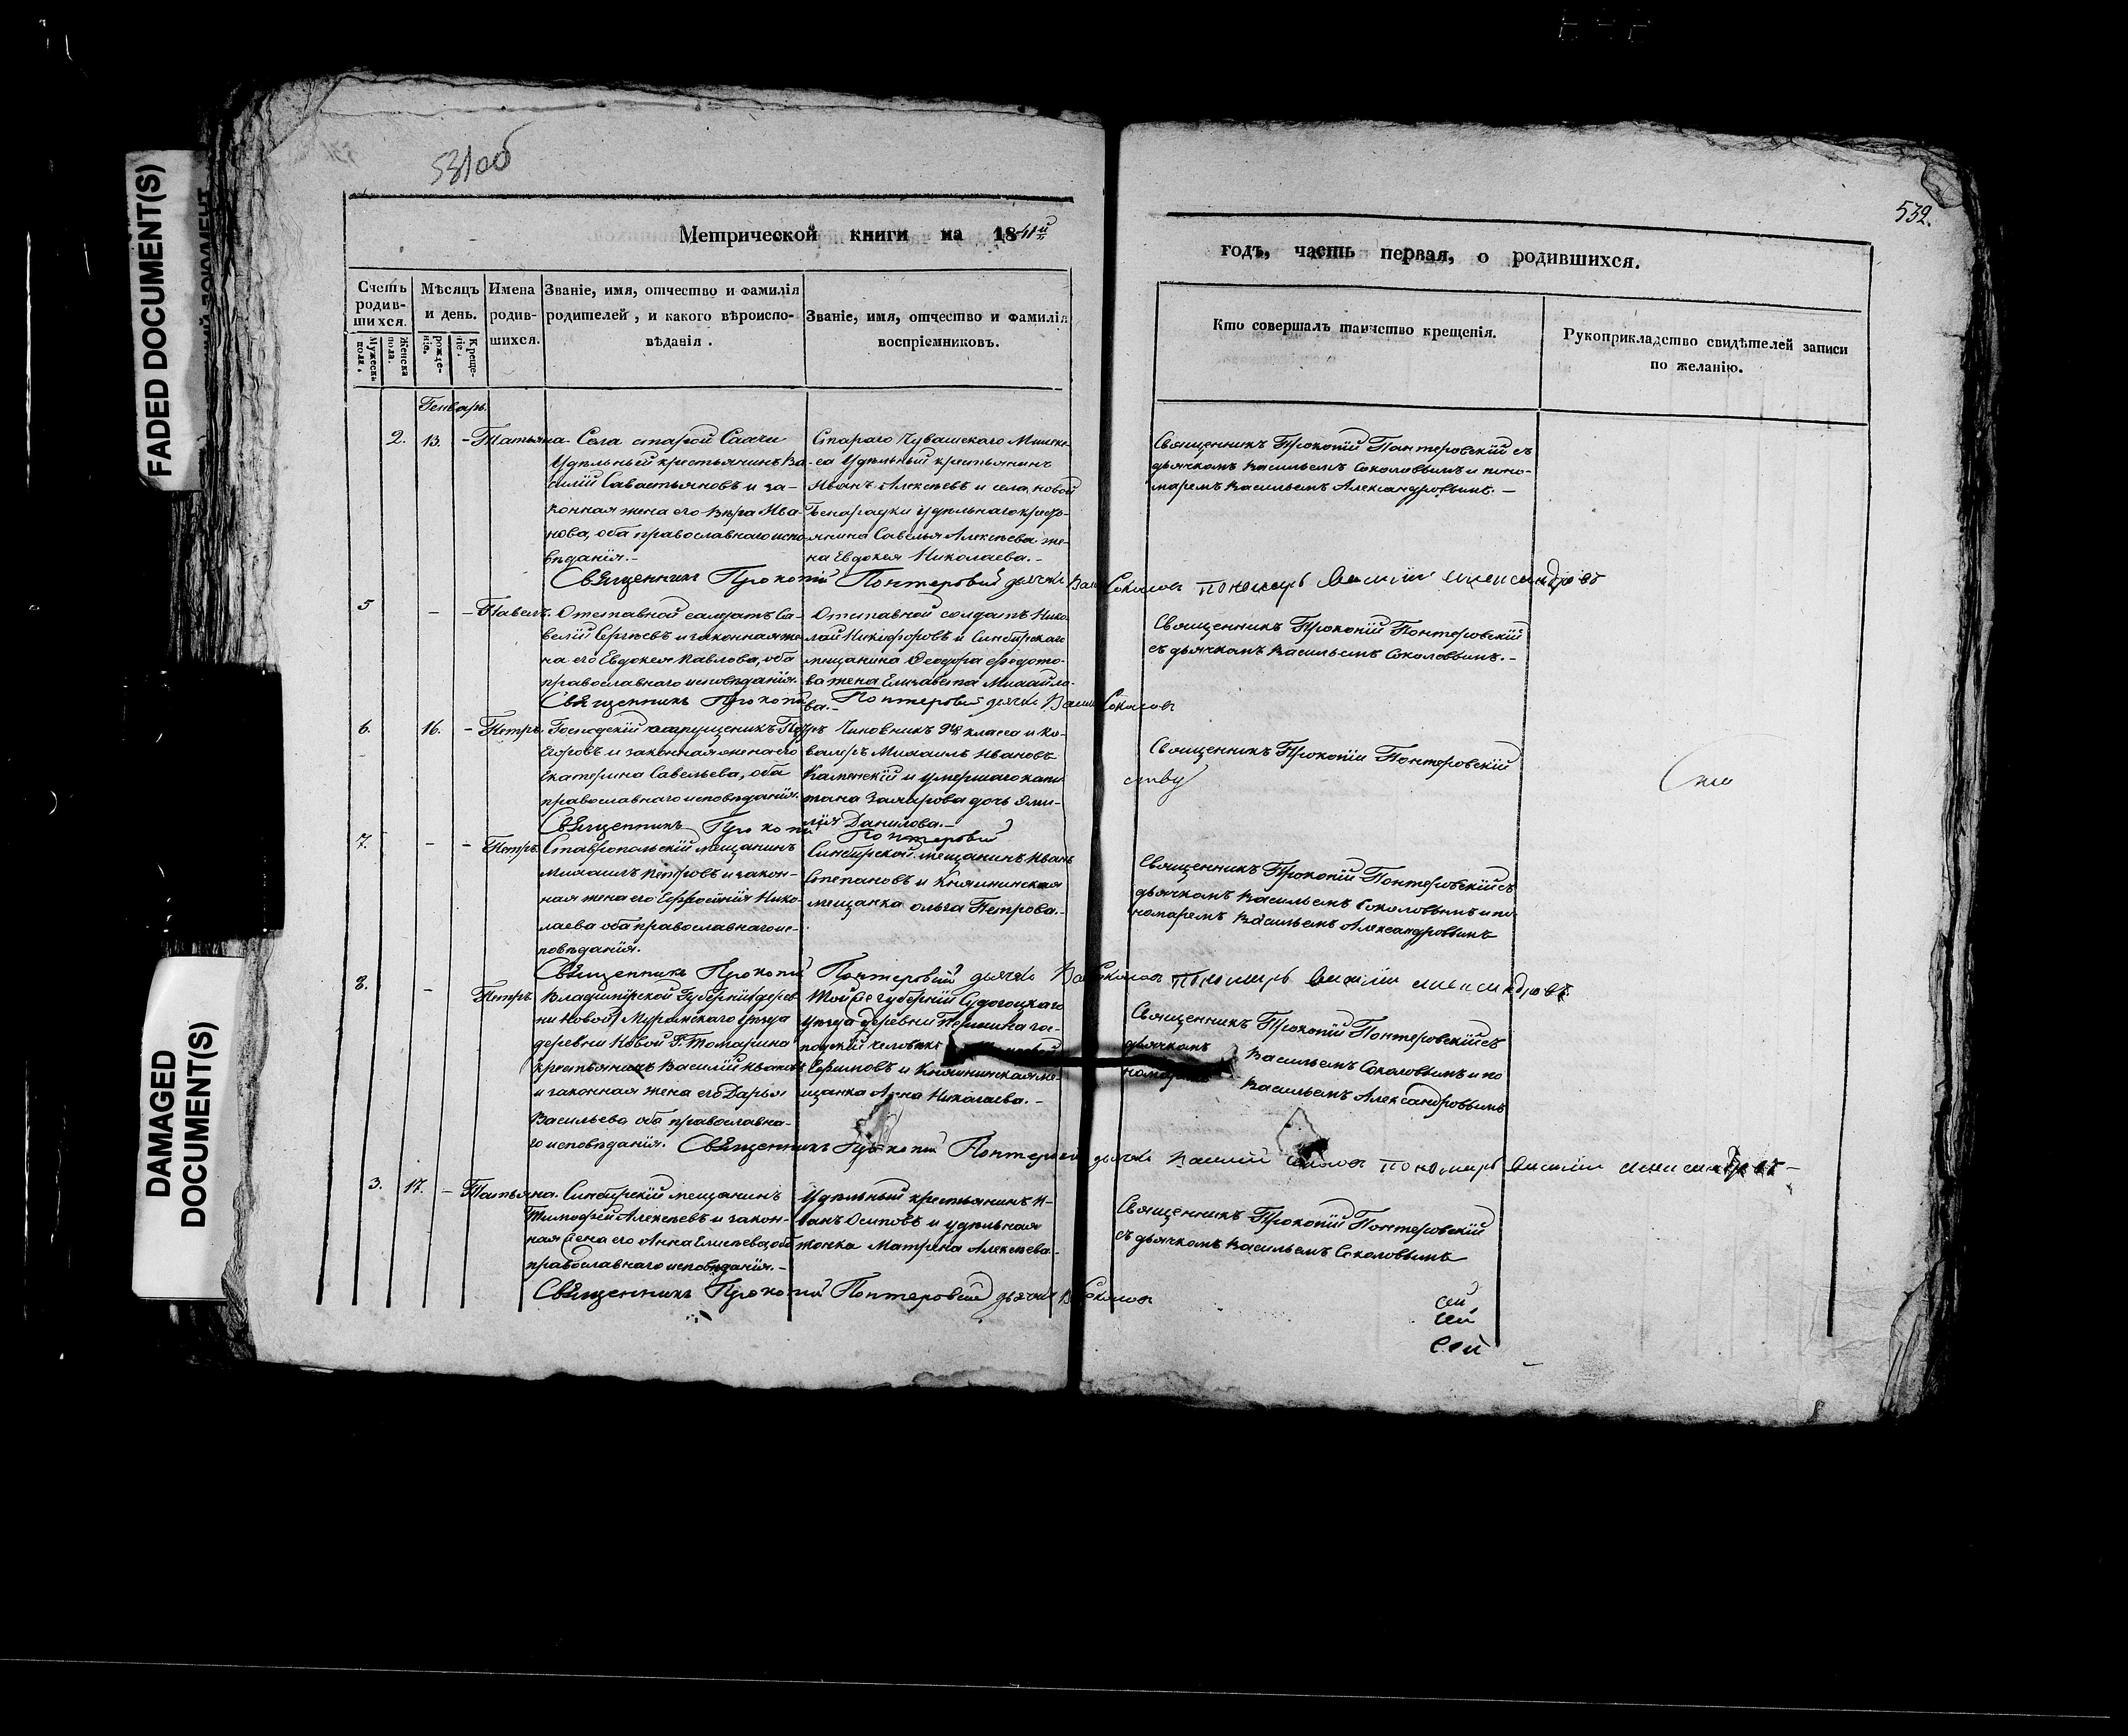 FADED DOCUMENT(S)
DAMAGED
DOCUMENT(S)
531об
532.
Метрической книги на 1841й
годъ, часть первая, о родившихся.
Счетъ родив-шихся.
Мужеска пола.
Женска пола.
Мѣсяцъ и день.
рожде-нія.
Креще-нія.
Имена родив-шихся.
Званіе, имя, отчество и фамилія
родителей, и какого вѣроиспо-
вѣданія.
Званіе, имя, отчество и фамилія
воспріемниковъ.
Кто совершалъ таинство крещенія.
Рукоприкладство свидѣтелей записи
по желанію.
Генварь.
2. 13. - Татьяна.
Села старой
Удѣльный крестьянинъ Ва-
силій Савастьяновъ и за-
конная жена его Вѣра Ива-
нова, оба православнаго испо-
вѣданія.-
Стараго Чувашскаго
са Удѣльный крестьянинъ
Иванъ Алексѣевъ и села новой
удѣльнаго кресть-
янина Савелья Алексѣева же-
на Евдокея Николаева.-
Священникъ Прокопій Понтеровскій съ
дьячкомъ Васильемъ Соколовымъ и поно-
маремъ Васильемъ Александровымъ.-
Священникъ Прокопій Понтеровскій дьячекъ Соколовъ пономарь Василій Александровъ
5 - - Павелъ.
Отставной солдатъ Са-
велій Сергѣевъ и законная же-
на его Евдокея Павлова, оба
православнаго исповѣданія.
Отставной солдатъ Нико-
лай Никифоровъ и Синбирскаго
мещанина Ѳеодора Ѳедото-
ва жена Елизавета Михайло-
ва.-
Священникъ Прокопій Понтеровскій
съ дьячкомъ Васильемъ Соколовымъ.-
Священникъ Прокопій Понтеровскій дьячекъ Соколовъ
6. 16. - Петръ.
Господскій Петръ
Егоровъ и законная жена его
Екатерина Савельева, оба
православнаго исповѣданія.
Чиновникъ 9го класса и ка-
валеръ Михаилъ Ивановъ
Каменскій и умершаго капи-
тана дочь Эми-
лія Данилова.-
Священникъ Прокопій Понтеровскій
Священникъ Прокопій Понтеровскій
7. - - Петръ.
Ставропольскій мещанинъ
Михаилъ Петровъ и закон-
ная жена его Нико-
лаева оба православнаго ис-
повѣданія.
Синбирской мещанинъ Иванъ
Степановъ и Княгининская
мещанка Ольга Петрова.-
Священникъ Прокопій Понтеровскій съ
дьячкомъ Васильемъ Соколовымъ и по-
номаремъ Васильемъ Александровымъ
Священникъ Прокопій Понтеровскій дьячекъ Соколовъ пономарь Василій Александровъ
8. - Петръ
Владимірской Губерніи дерев-
ни Новой Муромскаго уѣзда
деревни Новой
крестьянинъ Василій Ивановъ
и законная жена его Дарья
Васильева оба православна-
го исповѣданія.
Той же губерніи Судогоцкаго
уѣзда деревни гос-
подскій человѣкъ
Ефимовъ и Княгининская ме-
щанка Анна Николаева.-
Священникъ Прокопій Понтеровскій съ
дьячкомъ Васильемъ Соколовымъ и по
номаремъ Васильемъ Александровымъ
Священникъ Прокопій Понтеровскій дьячекъ Василій Соколовъ пономарь Василій Александровъ-
3. 17. - Татьяна.
Синбирскій мещанинъ
Тимофей Алексѣевъ и закон-
ная жена его Анна Елисѣева, оба
православнаго исповѣданія.-
Удѣльный крестьянинъ И-
ванъ Осиповъ и удѣльная
женка Матрена Алексѣева.-
Священникъ Прокопій Понтеровскій
съ дьячкомъ Васильемъ Соколовымъ
Священникъ Прокопій Понтеровскій дьячекъ Соколовъ
сей
сей
сей